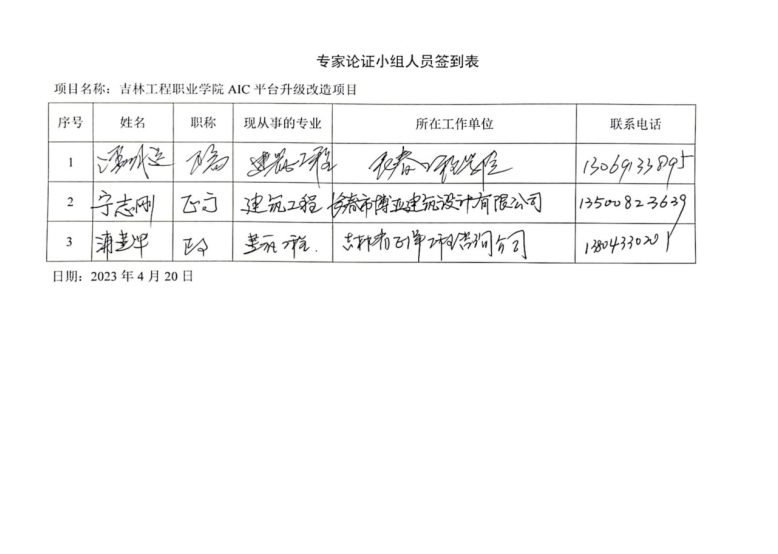 专家论证小组人员签到表
项目名称：吉林工程职业学院 AIC 平台升级改造项目
序号 姓名 职称 现从事的专业 所在工作单位 联系电话
1 正高 建筑工程 长春工程学院 13069133895
2 宁志刚 正高 建筑工程 长春市博亚建筑设计有限公司 13500823639
3 正高 建筑工程 吉林省 工程咨询公司
日期：2023 年 4 月 20 日